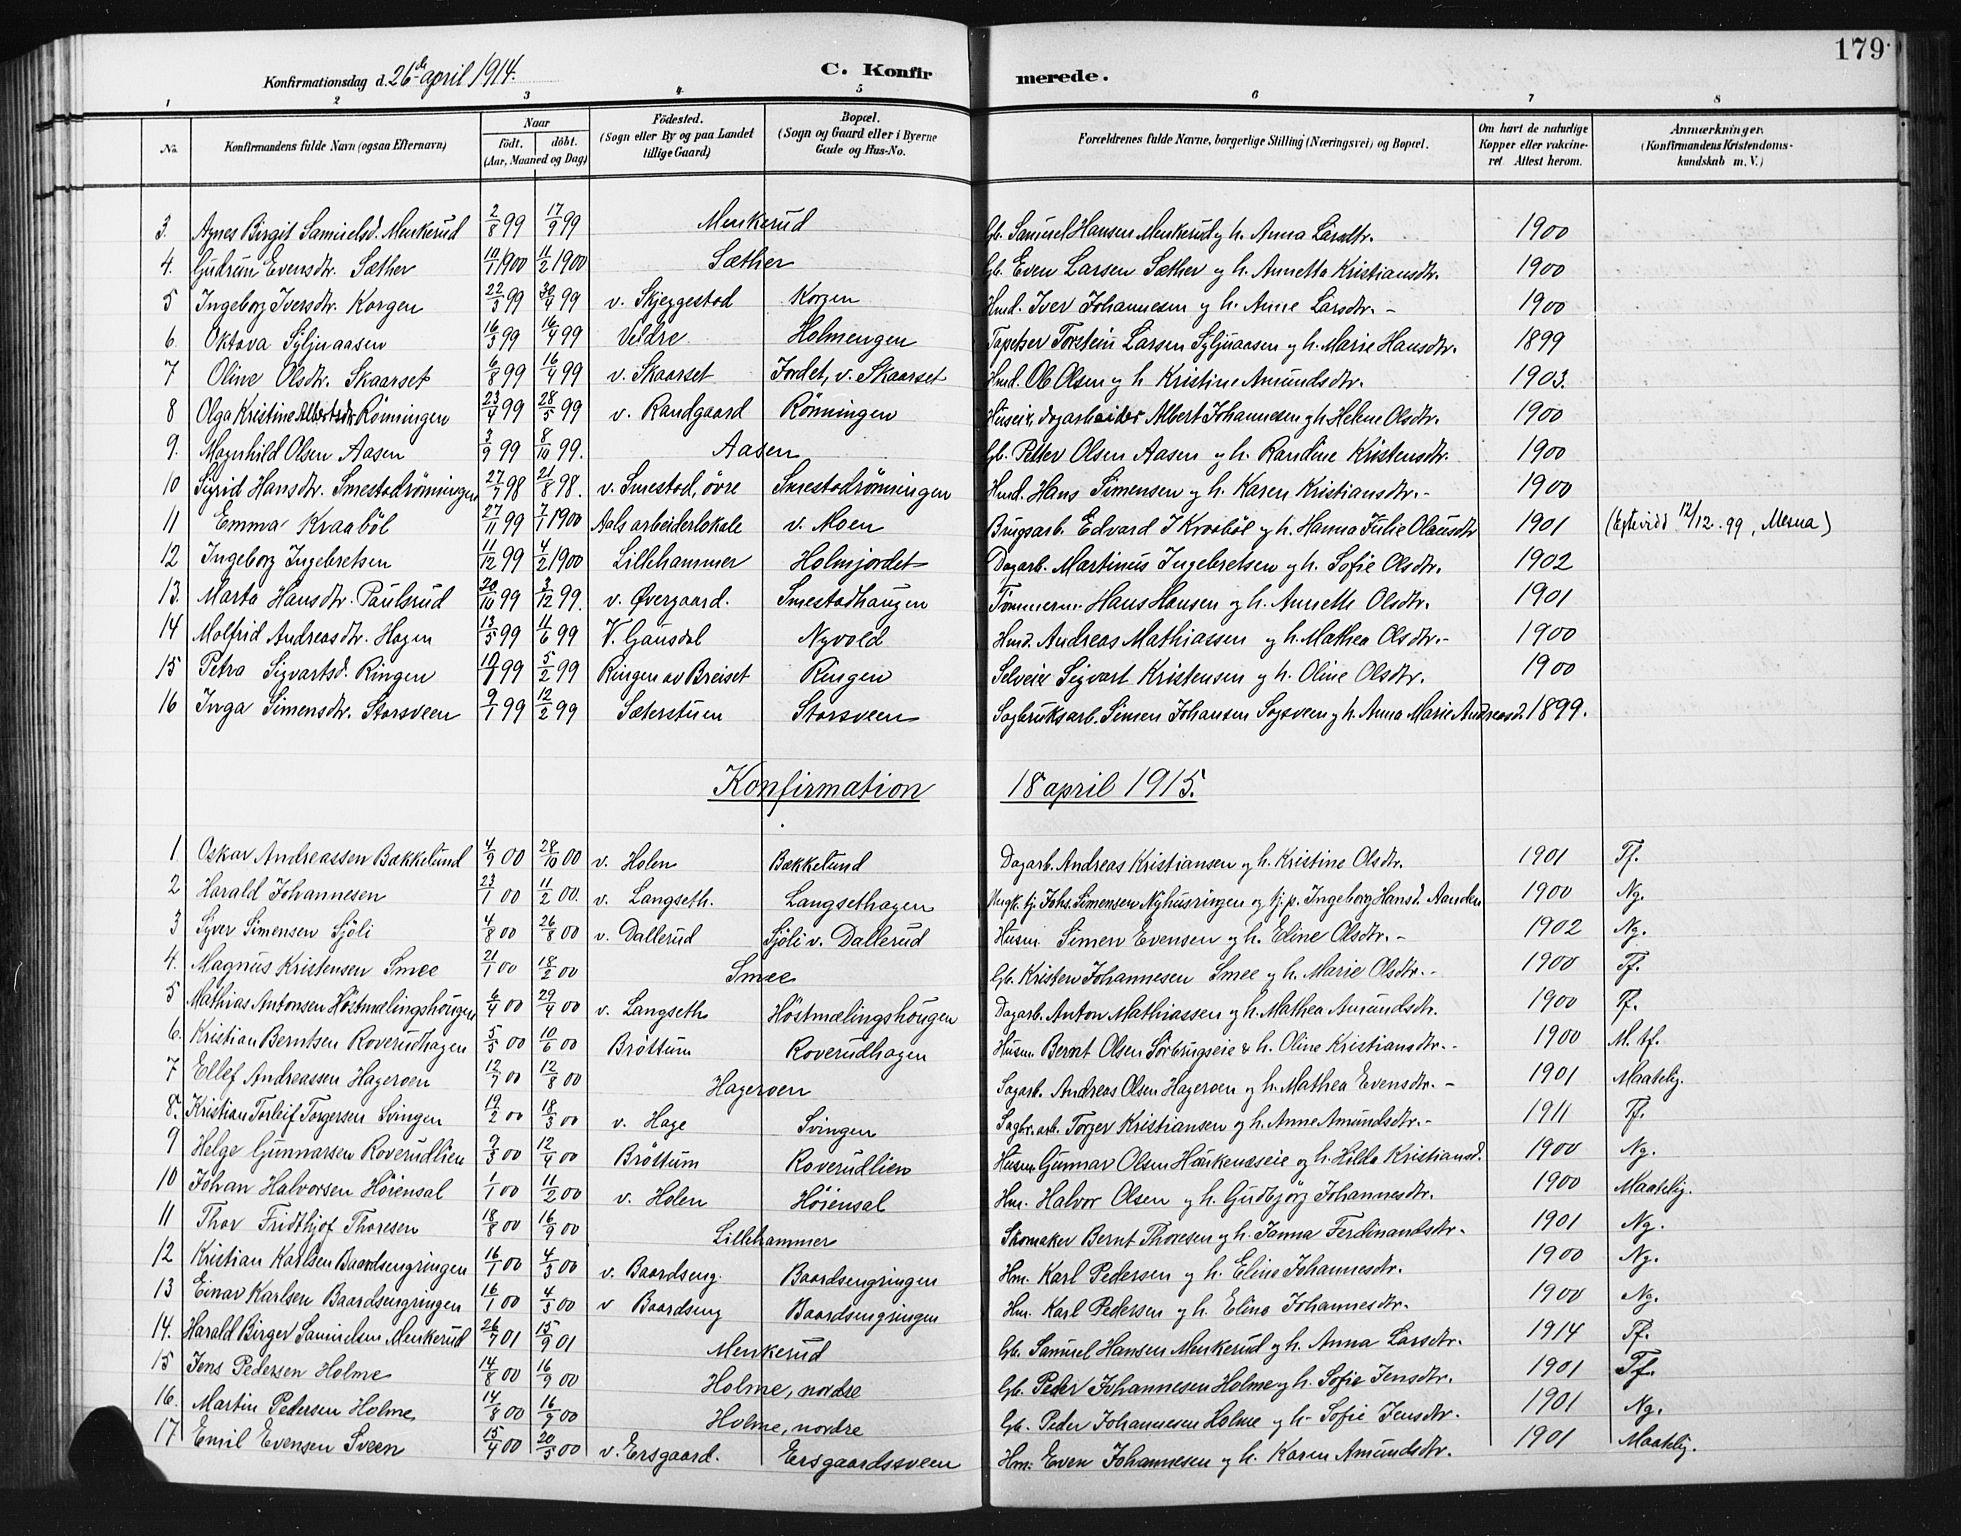 179
Konfirmationsdag d. 26de april 1914. C. Konfirmerede.
1 2 3 4 5 6 7 8
No. Konfirmandens fulde Navn (ogsaa Efternavn) Naar født, døbt. (Aar, Maaned og Dag) Fødested. (Sogn eller By og paa Landet tillige Gaard) Bopæl. (Sogn og Gaard eller i Byerne Gade og Hus-No. Forældrenes fulde Navne, borgerlige Stilling (Næringsvei) og Bopæl. Om havt de naturlige Kopper eller vakcineret Attest herom. Anmærkninger. (Konfirmandens Kristendomskundskab m. V.)
3. Agnes Birgit Samuelsd. Menkerud 2/8 99 17/9 99 Menkerud Gb. Samuel Hansen Menkerud og h. Anna Larsdtr. 1900
4. Gudrun Evensdtr. Sæther 10/1 1900 11/2 1900 Sæther Gb. Even Larsen Sæther og h. Annette Kristiansdtr. 1900
5 Ingeborg Iversdtr. Korgen 22/3 99 30/4 99 v. Skjeggestad Korgen Hmd. Iver Johannesen og h. Anne Larsdtr. - 1900
6 Oktava Syljuaasen 16/3 99 16/4 99 Veldre Holmengen Tapetser Torstein Larsen Syljuaasen og h. Marie Hansdtr. 1899
7 Oline Olsdtr. Skaarset 6/8 99 16/4 99 v. Skaarset Jordet, v. Skaarset Hmd. Ole Olsen og h. Kristine Amundsdtr. 1903.
8 Olga Kristine Albertsdtr Rönningen 23/4 99 28/5 99 v. Randgaard Rönningen Huseier, dagarbeider Albert Johannesen og h. Helene Olsdtr. 1900
9. Magnhild Olsen Aasen 3/9 99 8/10 99. Aasen Gb. Petter Olsen Aasen og h. Randine Kristensdtr. 1900
10 Sigrid Hansdtr. Smestadrönningen 27/7 98 21/8 98. v. Smestad, övre Smestadrönningen Hmd. Hans Simensen og h. Karen Kristiansdtr. - 1900
11 Emma Kraaböl 27/11 99 7/1 1900 Aals arbeiderlokale v. Moen Brugsarb. Edvard J Kraaböl og h. Hanna Julie Olausdtr 1901 (Egtevidd 12/12 .99, Mesna)
12 Ingeborg Ingebretsen 11/12 99 4/2 1900 Lillehammer Holmjordet Dagarb. Martinus Ingebretsen og h. Sofie Olsdtr. 1902
13. Marta Hansdtr. Paulsrud 20/10 99 3/12 99. v. Øvergaard. Smestadhaugen Tömmerm. Hans Hansen og h. Annette Olsdtr. 1901
14 Molfrid Andreasdtr. Hagen 13/5 99 11/6 99 V. Gausdal Nyvold Hmd. Andreas Mathiassen og h. Mathea Olsdtr. - 1900
15 Petra Sigvartsd. Ringen 5/2 99 Ringen av Breiset Ringen Selveier Sigvart Kristensen og h. Oline Olsdtr. 1900
16 Inga Simensdtr. Storsveen 9/1 99 12/2 99 Sæterstuen Storsveen Sagbruksarb. Simen Johansen Sagsveen og h. Anna Marie Andreasd. 1899.
Konfirmation 18 april 1915.
1 Oskar Andreassen Bakkelund 4/9 00 28/10 00 v. Holen Bækkelund Dagarb. Andreas Kristiansen og h. Kristine Olsdtr. 1901 Tf.
2 Harald Johannesen 23/1 00 11/2 00. v. Langseth. Langsethagen Ungk. tj. Johs. Simensen Nyhusringen og tj. p. Ingeborg Hansd. 1900 Ng.
3 Syver Simensen Sjöli 4/8 00 26/8 00 v. Dallerud Sjöli v. Dallerud Husm Simen Evensen og h. Eline Olsdtr. - 1902 Ng.
4. Magnus Kristensen Smee 21/1 00 18/2 00 Smee Gb. Kristen Johannesen Smee og h. Marie Olsdtr. - 1900 Tf.
5 Mathias Antonsen Höstmælingshougen 6/4 00 29/4 00 v. Langseth Höstmælingshougen Dagarb. Anton Mathiassen og h. Mathea Amundsdtr. 1900 Tf.
6. Kristian Berntsen Roverudhagen 5/5 00 10/6 00 Bröttum Roverudhagen Husm Bernt Olsen Sörbrugseie & h. Oline Kristiansdtr. - 1900 M. tf.
7 Ellef Andreassen Hageroen 12/7 00 12/8 00 Hageroen Sagarb. Andreas Olsen Hageroen og h. Mathea Evensdtr. - 1901 Maatelig.
8. Kristian Torleif Torgersen Svingen 19/2 00 18/3 00 v. Hage Svingen Sagbr.arb. Torger Kristiansen og h. Anne Amundsdtr. - 1911 Tf.
9 Helge Gunnarsen Roverudlien 9/3 00 12/4 00 Bröttum Roverudlien Husm Gunnar Olsen Haukenæseie og h. Hilda Kristiansd. 1900 Ng.
10 Johan Halvorsen Höiensal 1/1 00 11/2 00 v. Holen Höiensal Hm. Halvor Olsen og h. Gudbjörg Johannesdtr. 1900 Maatelig.
11 Thor Fridthjof Thoresen 18/8 00 16/9 00 Lillehammer Skomaker Bernt Thoresen og h. Janna Ferdinandsdtr. 1901 Ng.
12 Kristian Karlsen Baardsengringen 16/1 00 4/3 00 v. Baardseng. Baardsengringen Hm. Karl Pedersen og h. Eline Johannesdtr. 1900 Ng.
13 Einar Karlsen Baardsengringen 16/1 00 4/3 00 v Baardseng Baardsengringen Hm. Karl Pedersen og h. Eline Johannesdtr. 1900 Ng.
14. Harald Birger Samuelsen Menkerud 26/7 01 15/9 01 Menkerud Gb. Samuel Hansen Menkerud og h. Anna Larsdtr. 1914 Tf.
15 Jens Pedersen Holme 14/8 00 16/9 00 Holme, nordre Gb. Peder Johannesen Holme og h. Sofie Jensdtr. 1901 Tf.
16. Martin Pedersen Holme 14/8 00 16/9 00 Holme, nordre Gb. Peder Johannesen Holme og h. Sofie Jensdtr. 1901 Ng.
17 Emil Evensen Sveen 15/4 00 20/5 00 v. Ersgaard. Ersgaardssveen Hm. Even Johannesen og h. Karen Amundsdtr. 1901 Maatelig.